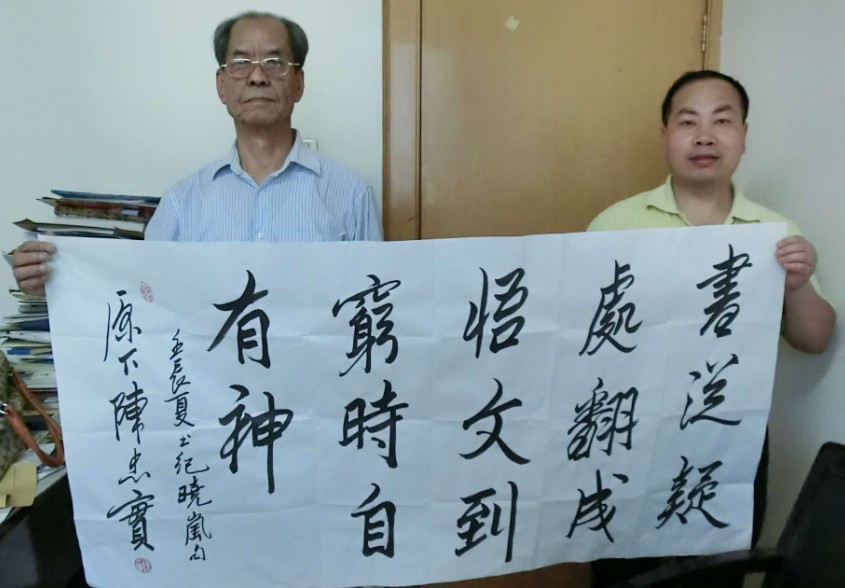 書從疑
處翻成
悟文到
窮時自
有神
壬辰夏书纪晓嵐句
原下陳忠實